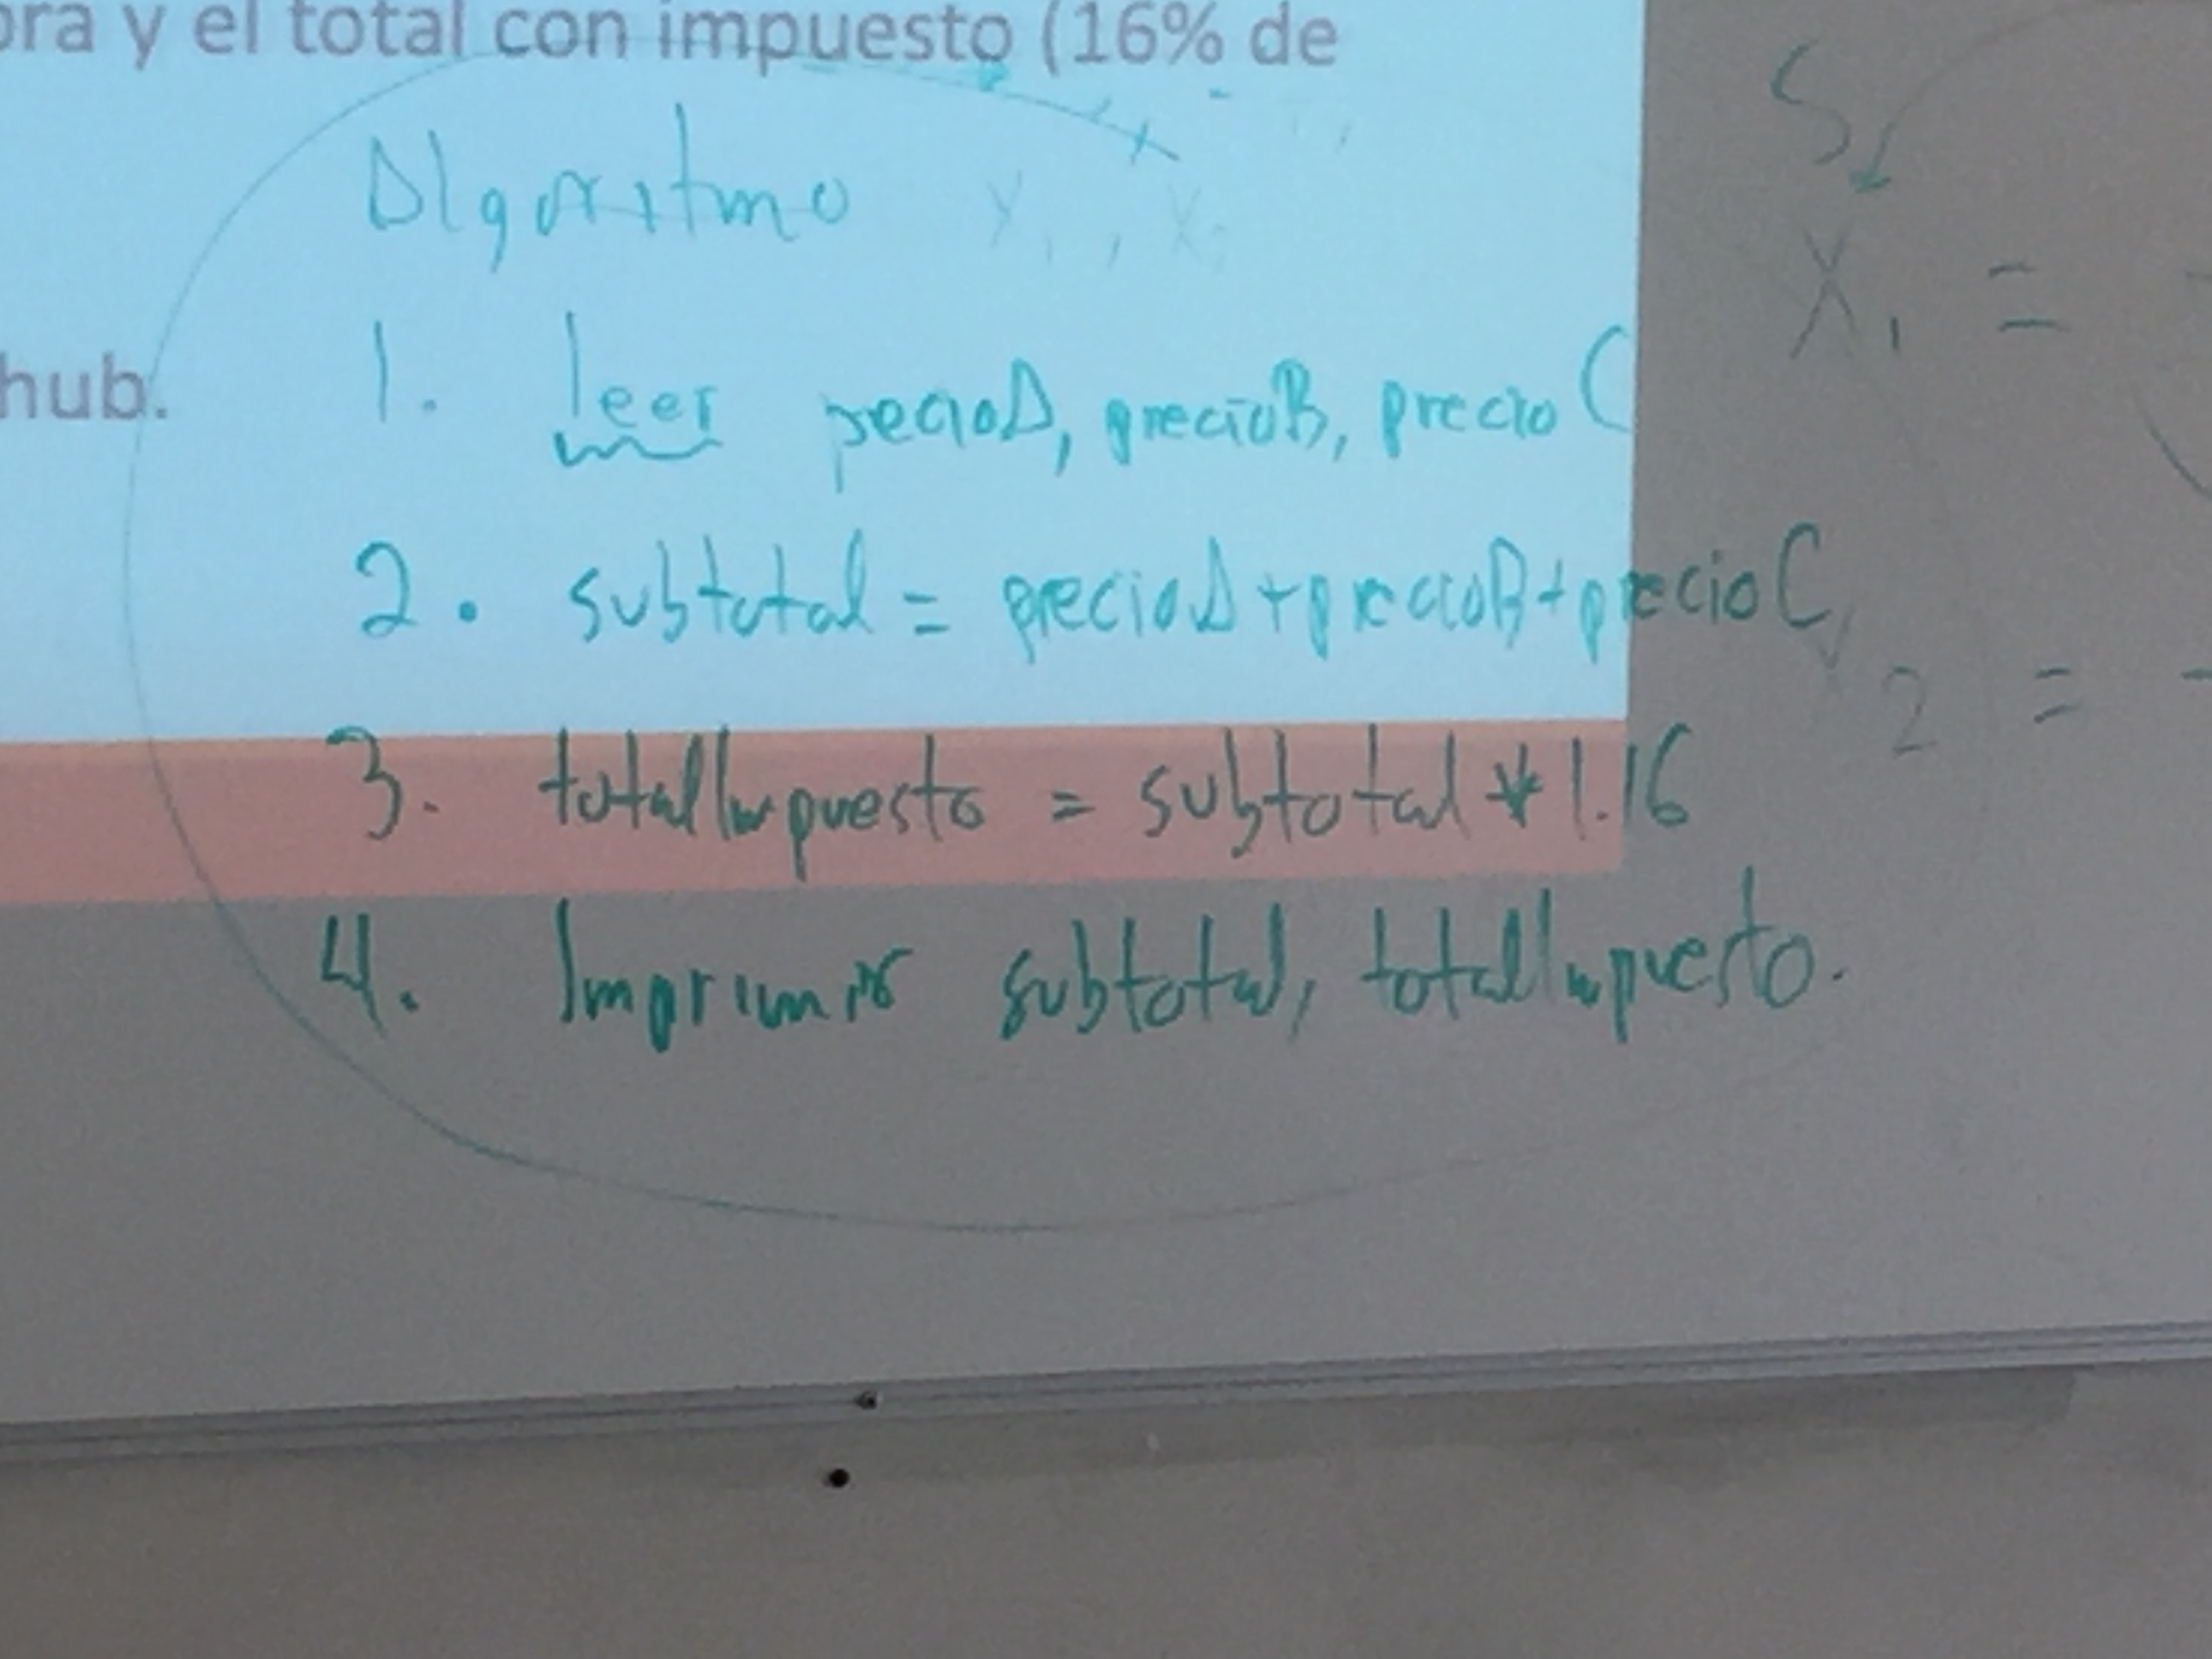 ora y el total con impuesto (16% de
hub.
Algoritmo
1. leer precioA, precioB, precioC
2. subtotal = precioA + precioB + precioC
3. totalImpuesto = subtotal * 1.16
4. Imprimir subtotal, totalImpuesto.
S
X1 =
2 =